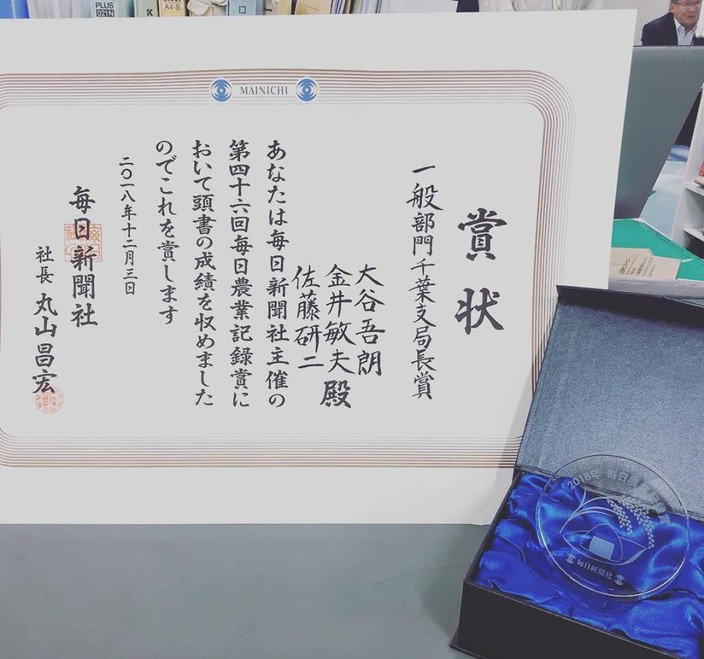 MAINICHI
賞状
一般部門千葉支局長賞
大谷吾朗
金井敏夫 殿
佐藤研二
あなたは毎日新聞社主催の
第四十六回毎日農業記録賞に
おいて頭書の成績を収めました
のでこれを賞します
二〇一八年十二月三日
毎日新聞社
社長 丸山昌宏
PLUS
A4-S
2018年 毎日農
毎日新聞社